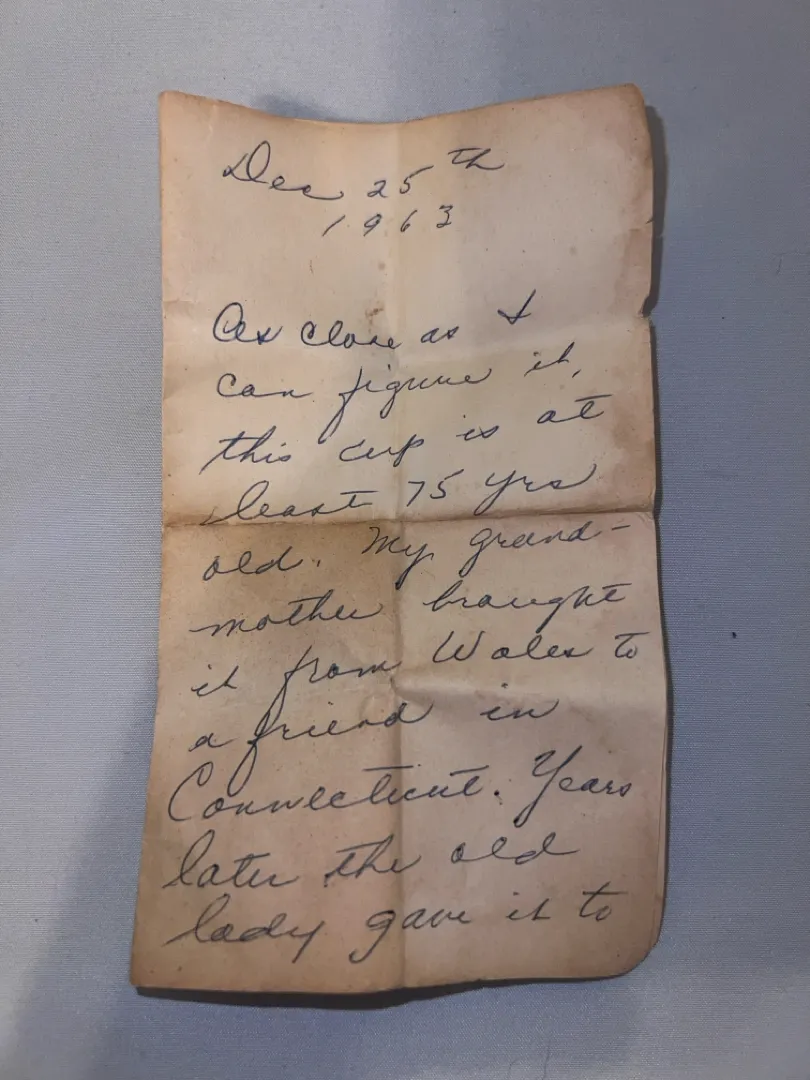 Dec 25th
1963
As close as I
can figure it,
this cup is at
least 75 yrs
old. My grand-
mother brought
it from Wales to
a friend in
Connecticut. Years
later the old
lady gave it to